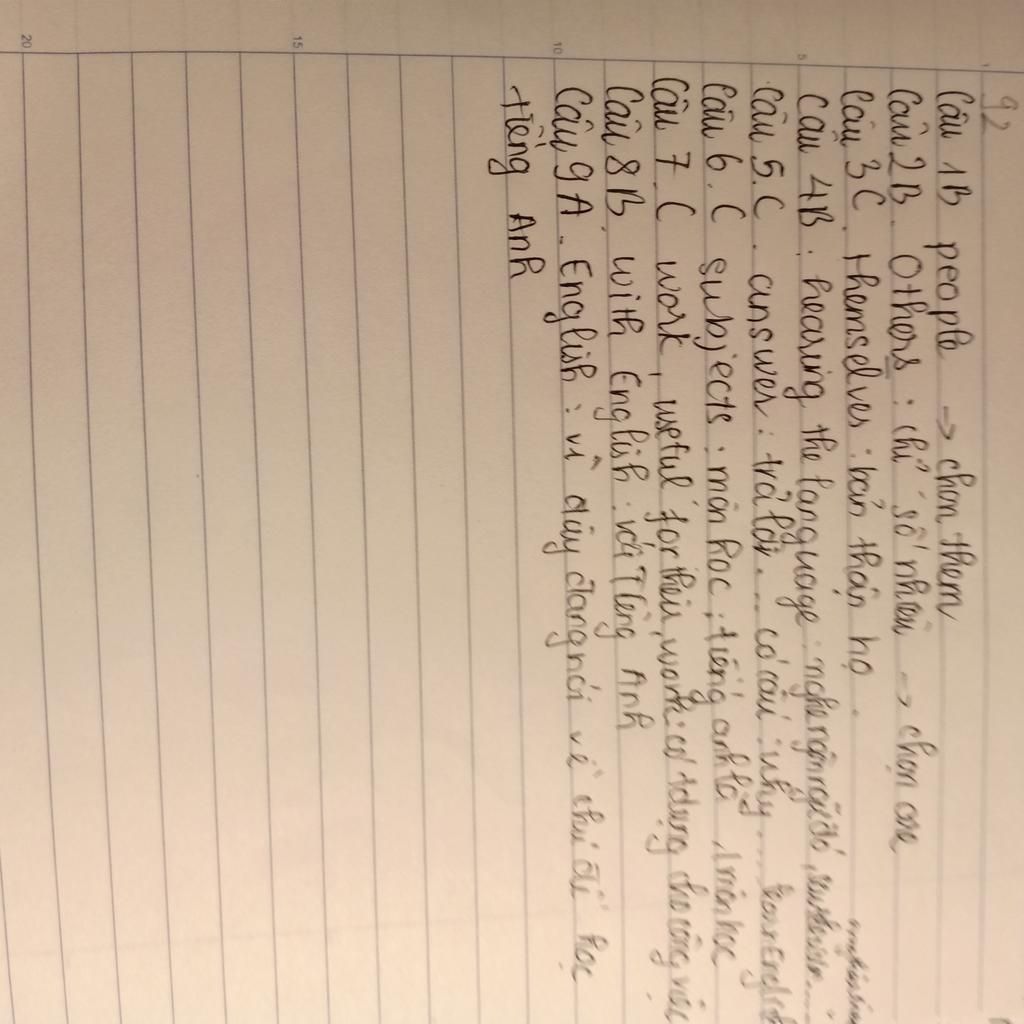 92
Câu 1B people → chọn them
Câu 2B. Others : chỉ số nhiều → chọn one
Câu 3C. themselves : bản thân họ.
Câu 4B. hearing the language : nghe
Câu 5.C. answer : trả lời.... có câu : why .... learn English
Câu 6. C subjects : môn học ; tiếng anh là 1 môn học
Câu 7. C work, useful for their work : có tdụng cho công việc
Câu 8B. with English : với Tiếng Anh
Câu 9A. English : vì đây đang nói về chủ đề học
tiếng Anh
1
5
10
15
20